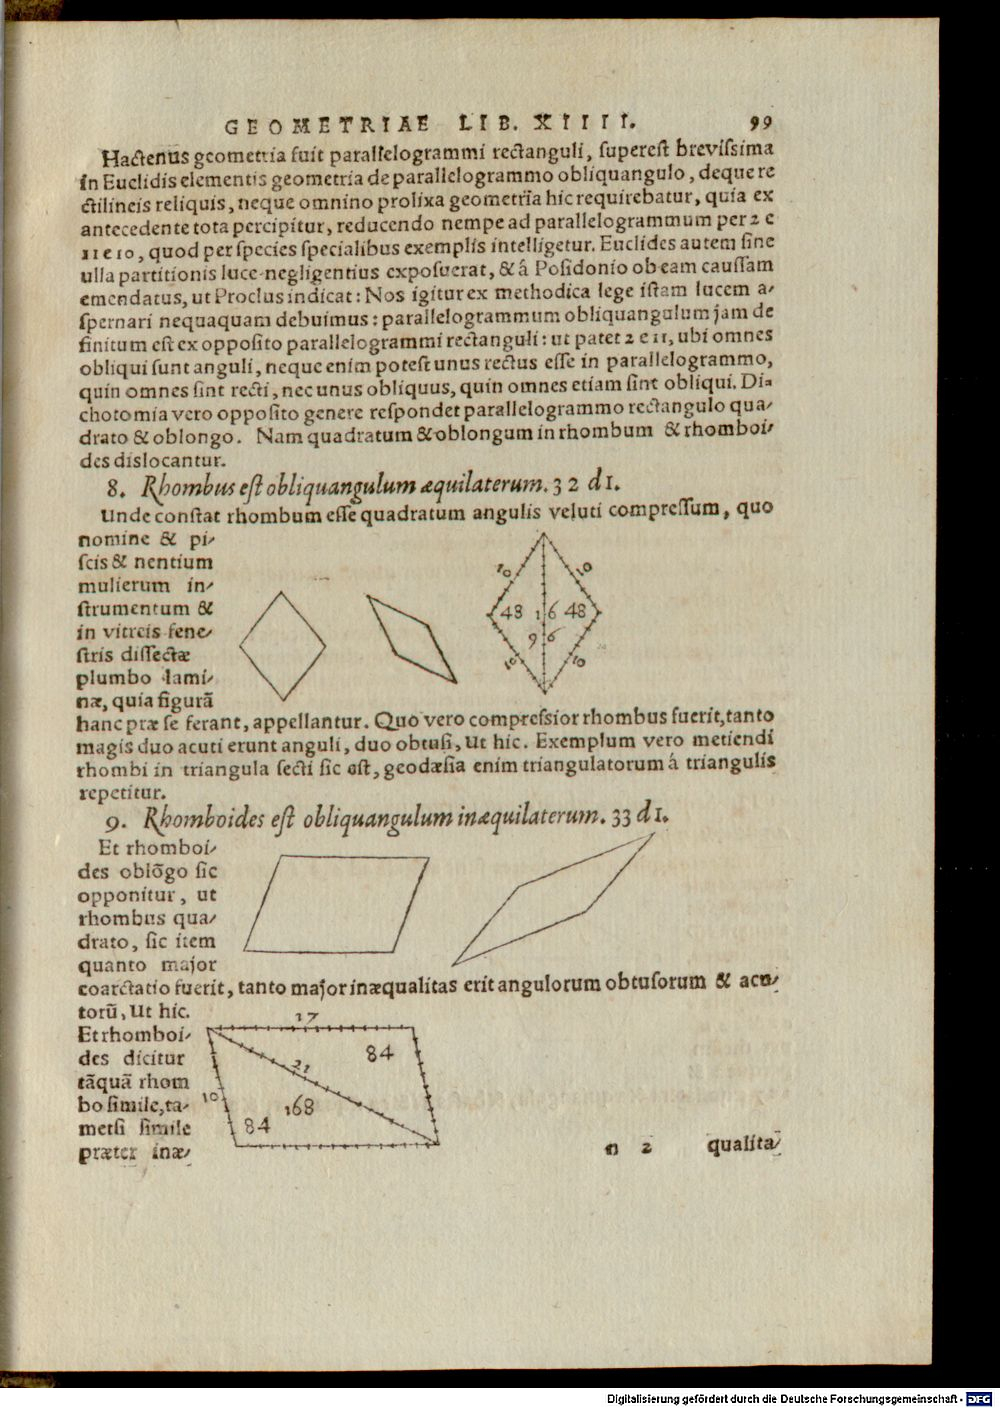 GEOMETRIAE LIB. XIIII. 99
Hactenus geometria fuit parallelogrammi rectanguli, superest brevissima
in Euclidis elementis geometria de parallelogrammo obliquangulo, deque re
ctilineis reliquis, neque omnino prolixa geometria hic requirebatur, quia ex
antecedente tota percipitur, reducendo nempe ad parallelogrammum per 2 e
11 e 10, quod per species specialibus exemplis intelligetur. Euclides autem sine
ulla partitionis luce negligentius exposuerat, & â Posidonio ob eam caussam
emendatus, ut Proclus indicat: Nos igitur ex methodica lege istam lucem a-
spernari nequaquam debuimus: parallelogrammum obliquangulum jam de
finitum est ex opposito parallelogrammi rectanguli: ut patet 2 e 11, ubi omnes
obliqui sunt anguli, neque enim potest unus rectus esse in parallelogrammo,
quin omnes sint recti, nec unus obliquus, quin omnes etiam sint obliqui. Di-
chotomia vero opposito genere respondet parallelogrammo rectangulo qua-
drato & oblongo. Nam quadratum & oblongum in rhombum & rhomboi-
des dislocantur.
8. Rhombus est obliquangulum æquilaterum. 32 d 1.
Unde constat rhombum esse quadratum angulis veluti compressum, quo
nomine & pi-
scis & nentium
mulierum in-
strumentum &
in vitreis fene-
stris dissectæ
plumbo lami-
næ, quia figurã
10 10
48 16 48
96
10 10
hanc præ se ferant, appellantur. Quo vero compressior rhombus fuerit, tanto
magis duo acuti erunt anguli, duo obtusi, Ut hic. Exemplum vero metiendi
rhombi in triangula secti sic est, geodæsia enim triangulatorum â triangulis
repetitur.
9. Rhomboides est obliquangulum inæquilaterum. 33 d 1.
Et rhomboi-
des oblõgo sic
opponitur, ut
rhombus qua-
drato, sic item
quanto major
coarctatio fuerit, tanto major inæqualitas erit angulorum obtusorum & acu-
torũ, Ut hic.
Et rhomboi-
des dicitur
tãquã rhom
bo simile, ta-
metsi simile
præter inæ-
17
84
21
10
168
84
n 2 qualita-
Digitalisierung gefördert durch die Deutsche Forschungsgemeinschaft - DFG